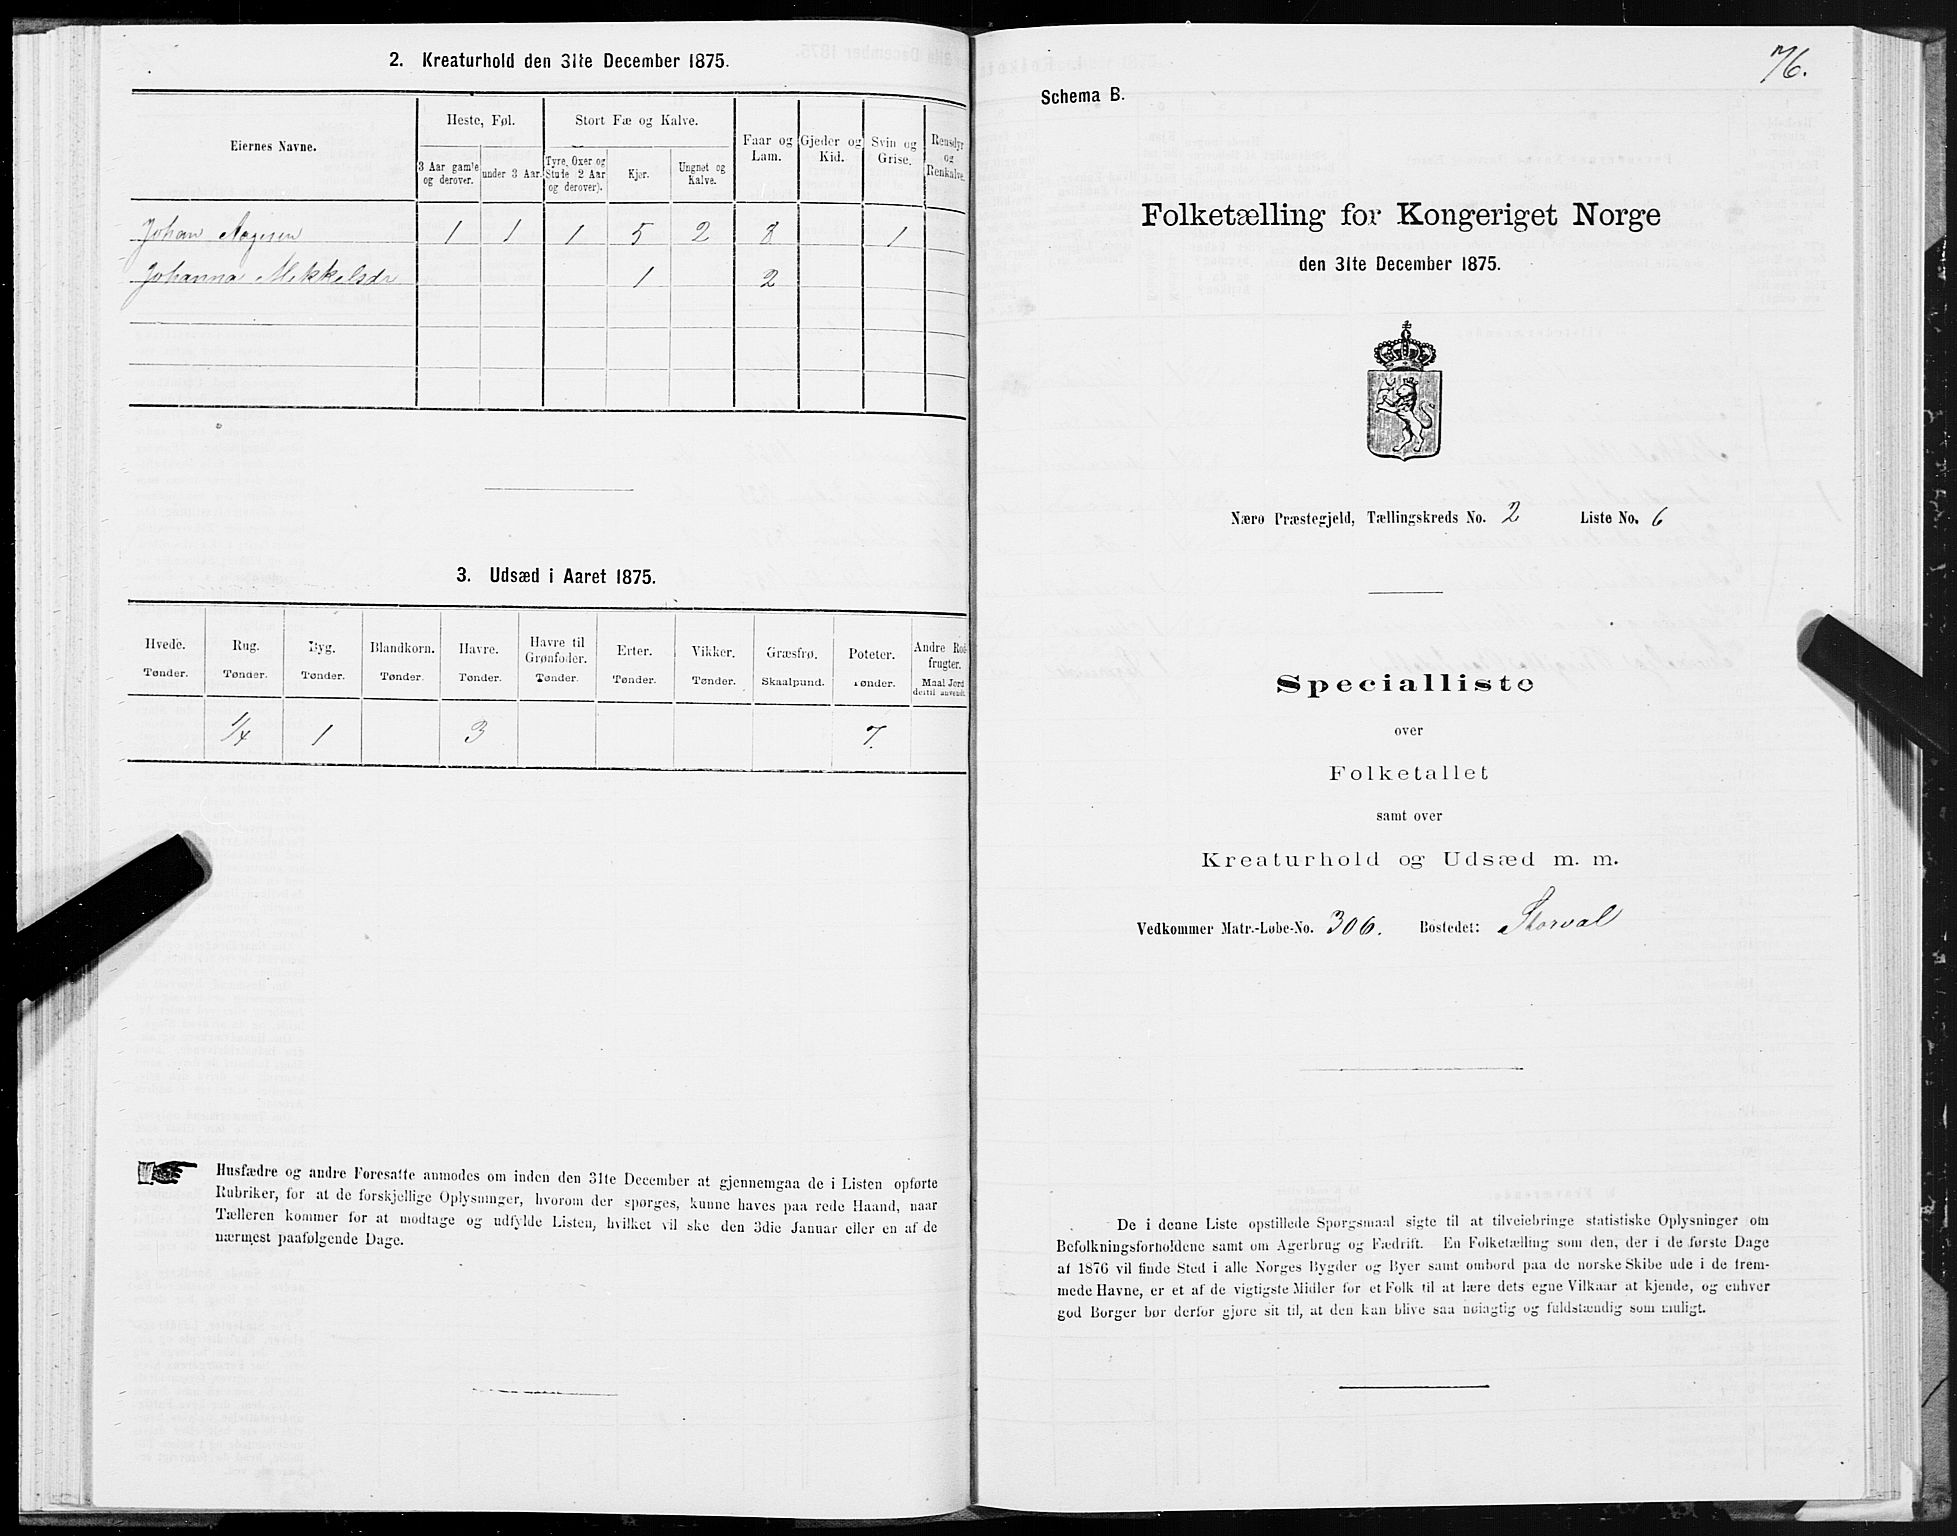 2. Kreaturhold den 31te December 1875.
Eiernes Navne.
Heste, Føl.
Stort Fæ og Kalve.
Faar og Lam.
Gjeder og Kid.
Svin og Grise.
Rensdyr og Renkalve.
3 Aar gamle og derover.
under 3 Aar.
Tyre, Oxer og Stude (2 Aar og derover).
Kjør.
Ungnet og Kalve.
Johan Aagesen 1 1 1 5 2 8 1
Johanna Mikkelsdr 1 2
3. Udsæd i Aaret 1875.
Hvede. Rug. Byg. Blandkorn. Havre. Havre til Grønfoder. Erter. Vikker. Græsfrø. Poteter. Andre Rodfrugter.
Tønder. Tønder. Tønder. Tønder. Tønder. Tønder. Tønder. Tønder. Skaalpund. Tønder. Maal Jord dertil anvendt.
1/4 1 3 7.
Husfædre og andre Foresatte anmodes om inden den 31te December at gjennemgaa de i Listen opførte
Rubriker, for at de forskjellige Oplysninger, hvorom der spørges, kunne haves paa rede Haand, naar
Tælleren kommer for at modtage og udfylde Listen, hvilket vil ske den 3die Januar eller en af de
nærmest paafølgende Dage.
76.
Schema B.
Folketælling for Kongeriget Norge
den 31te December 1875.
Nærø Præstegjeld, Tællingskreds No. 2 Liste No. 6
Specialliste
over
Folketallet
samt over
Kreaturhold og Udsæd m. m.
Vedkommer Matr.-Løbe-No. 306. Bostedet: Storval
De i denne Liste opstillede Spørgsmaal sigte til at tilveiebringe statistiske Oplysninger om
Befolkningsforholdene samt om Agerbrug og Fædrift. En Folketælling som den, der i de første Dage
af 1876 vil finde Sted i alle Norges Bygder og Byer samt ombord paa de norske Skibe ude i de frem-
mede Havne, er et af de vigtigste Midler for et Folk til at lære dets egne Vilkaar at kjende, og enhver
god Borger bør derfor gjøre sit til, at den kan blive saa nøiagtig og fuldstændig som muligt.